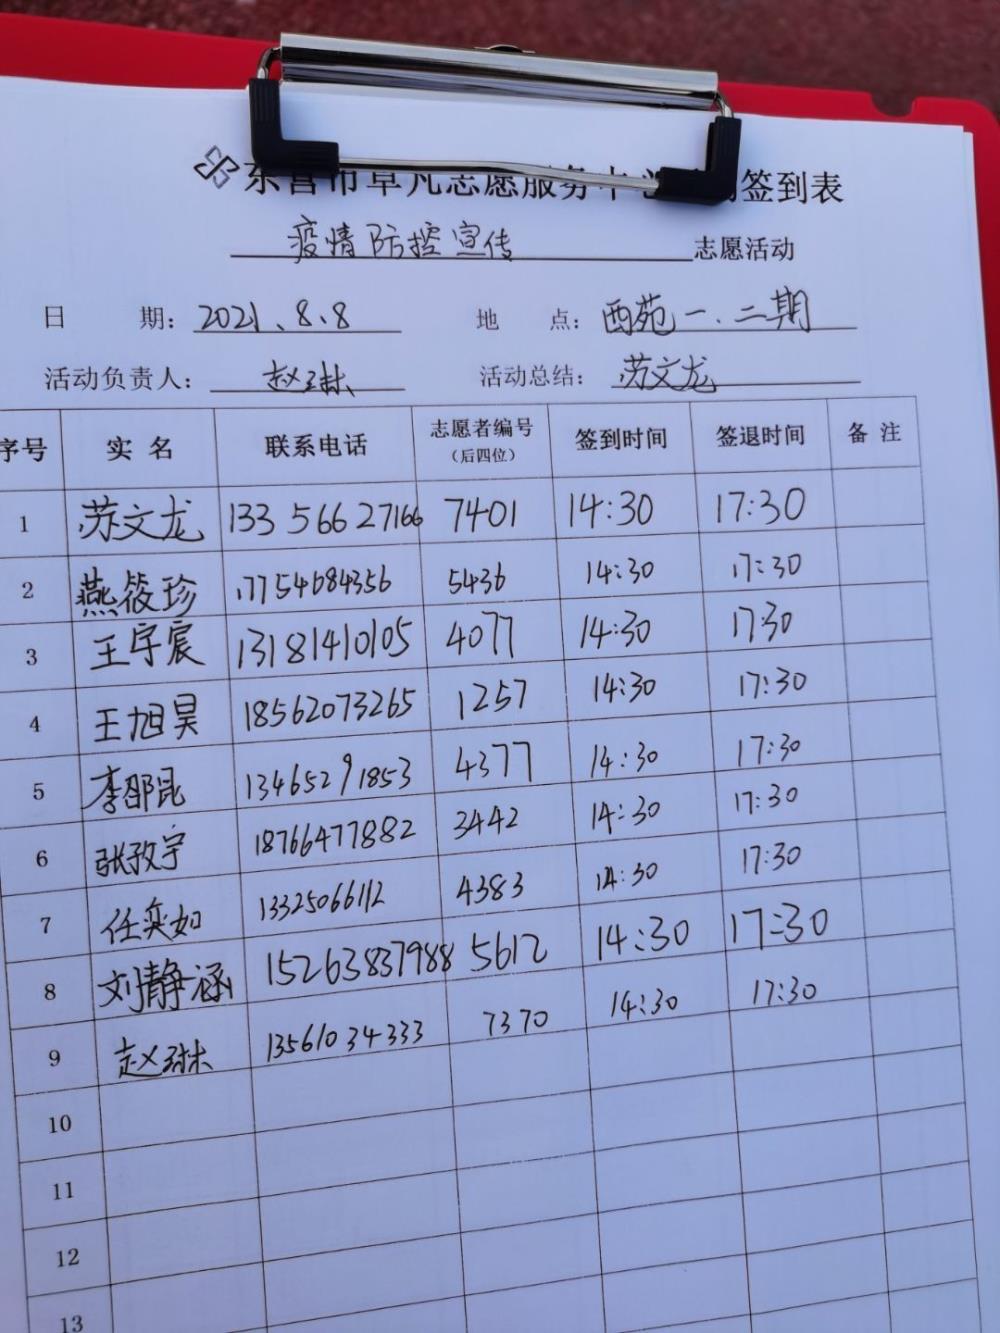 东营市草凡志愿服务中心 签到表
疫情防控宣传 志愿活动
日 期： 2021.8.8 地 点： 西苑一.二期
活动负责人： 赵琳 活动总结： 苏文龙
序号 实 名 联系电话 志愿者编号（后四位） 签到时间 签退时间 备 注
1 苏文龙 13356627166 7401 14:30 17:30
2 燕筱珍 17754684356 5436 14:30 17:30
3 王宇宸 13181410105 4077 14:30 17:30
4 王旭昊 18562073265 1257 14:30 17:30
5 李邵昆 13465291853 4377 14:30 17:30
6 张孜宇 18766477882 3442 14:30 17:30
7 任奕如 13325066112 4383 14:30 17:30
8 刘静涵 15263837988 5612 14:30 17:30
9 赵琳 13561034333 7370 14:30 17:30
10
11
12
13